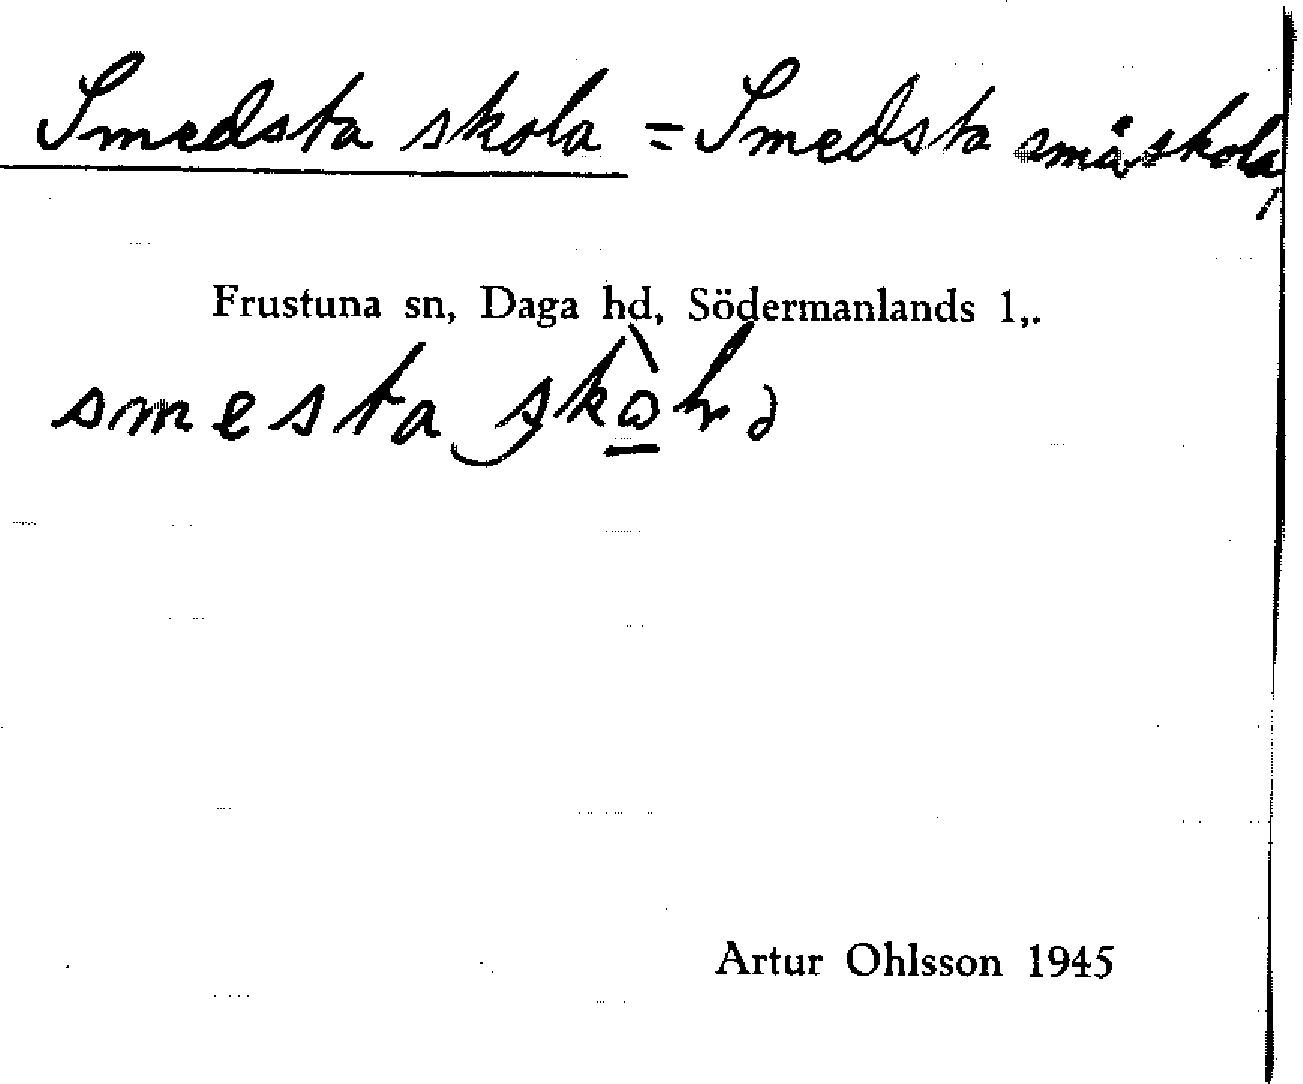 Smedsta skola = Smedsta småskola,
Frustuna sn, Daga hd, Södermanlands l,.
smesta
Artur Ohlsson 1945